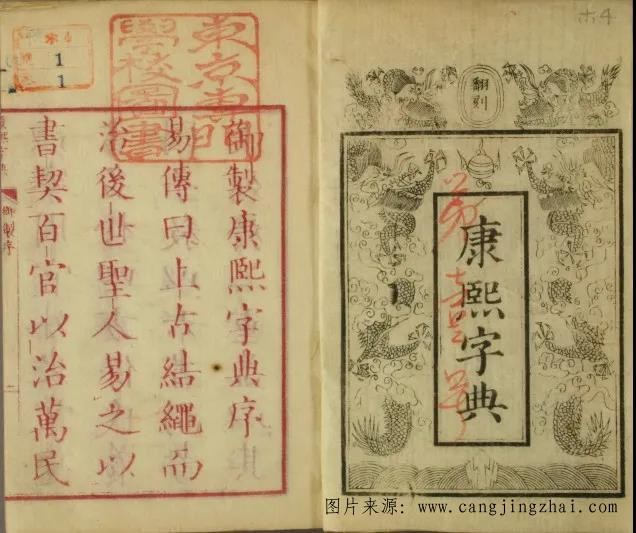 翻刻
康熙字典
1
東京專門
學校圖書
1
1
御製康熙字典序
易傳曰上古結繩而
治後世聖人易之以
書契百官以治萬民
御製序
图片来源：www.cangjingzhai.com